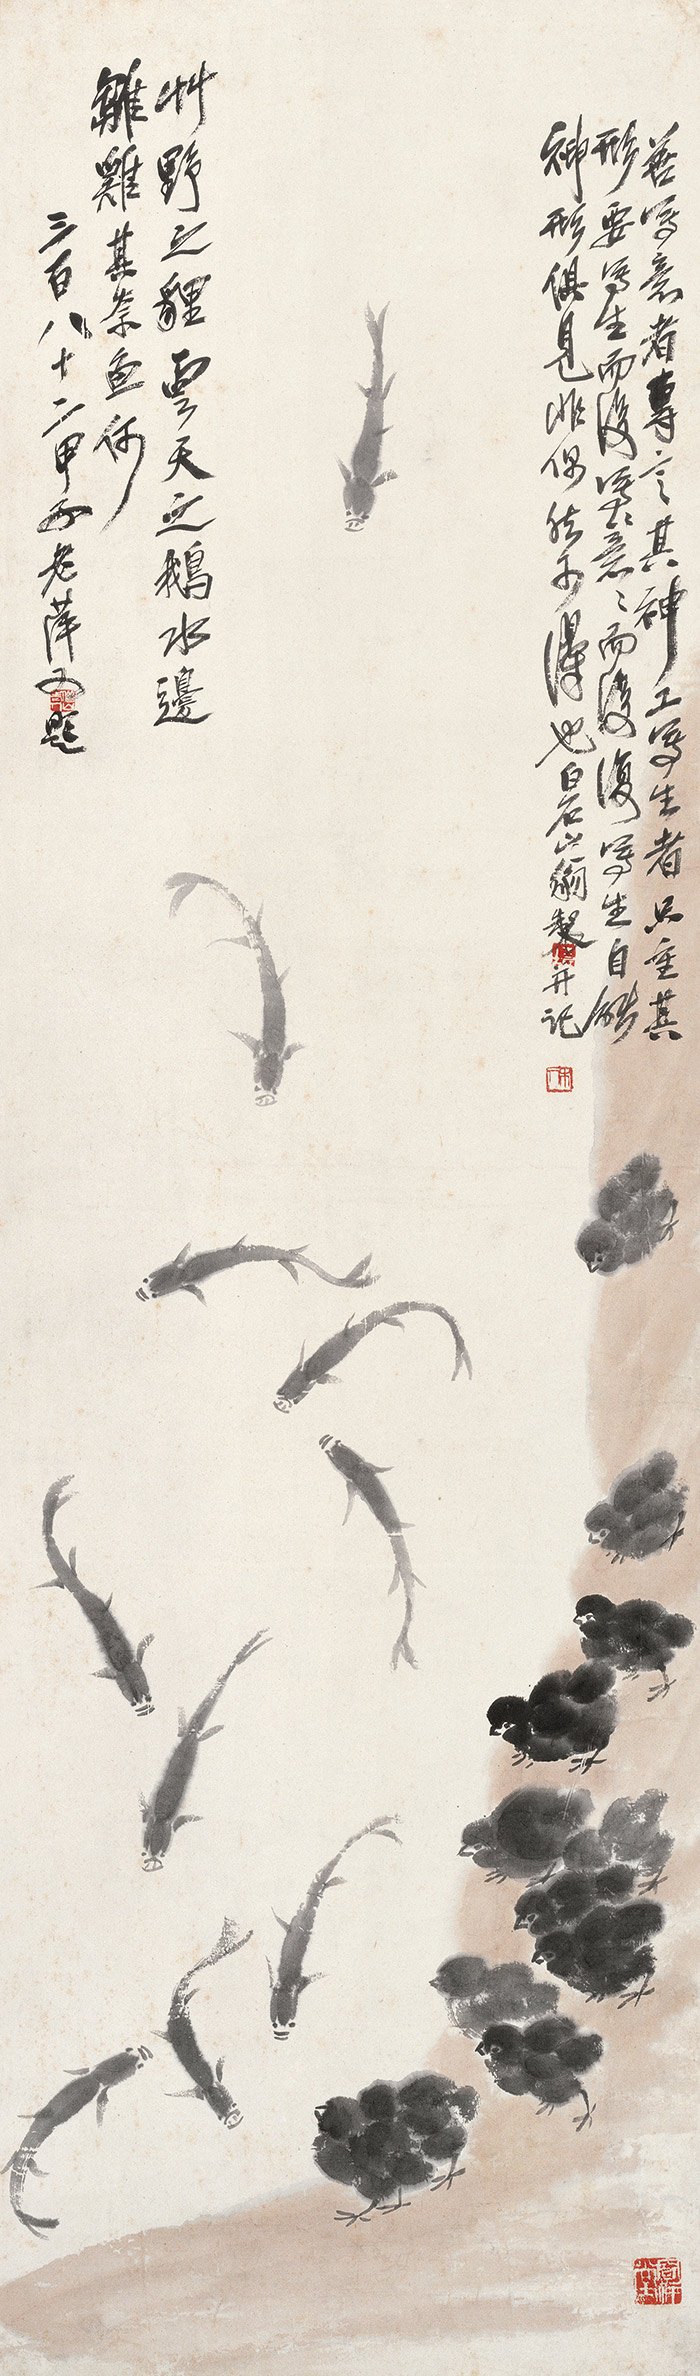 善寫意者專言其神工寫生者只重其
形要寫生而後寫〻意〻而後復寫生自能
神形俱見非偶然可得也白石山翁製并記
木人
艸野之貍雲天之鵝水邊
雛雞其奈魚何
三百八十二甲子老萍又題